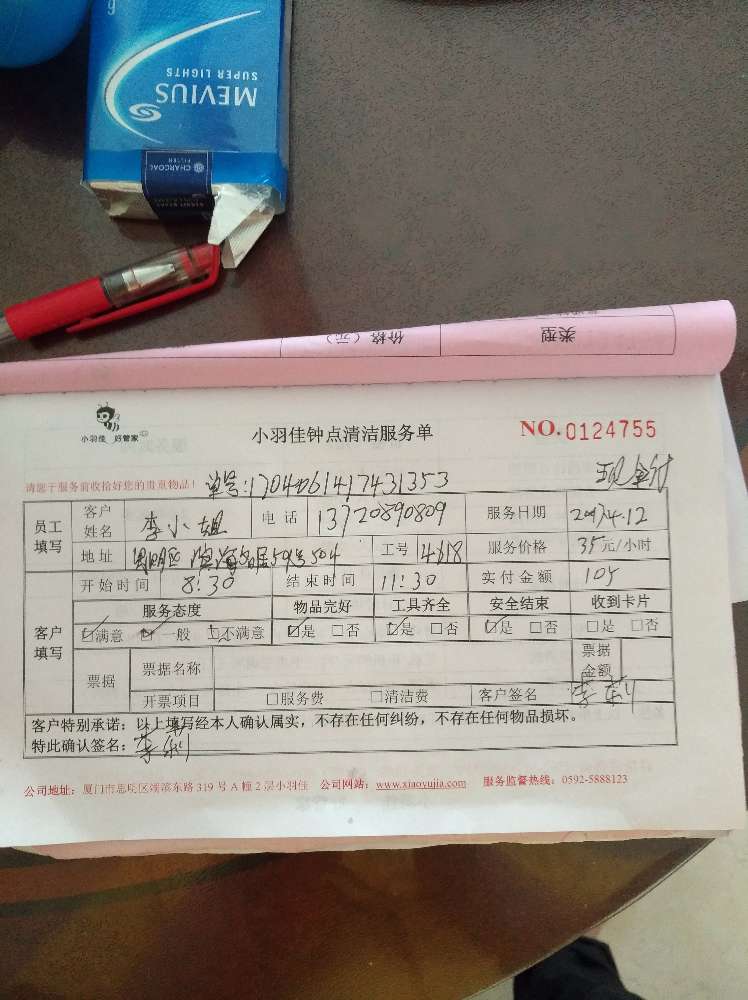 MEVIUS
SUPER LIGHTS
CHARCOAL
FILTER
类型
价格（元）
小羽佳 好管家
小羽佳钟点清洁服务单
NO. 0124755
请您于服务前收拾好您的贵重物品！
单号:
现金付
员工填写
客户姓名 李小姐 电话 13720890809 服务日期
地址 工号 4618 服务价格 35元/小时
开始时间 8:30 结束时间 11:30 实付金额 105
客户填写
服务态度 物品完好 工具齐全 安全结束 收到卡片
☑满意 ☑一般 ☑不满意 ☑是 □否 ☑是 □否 ☑是 □否 □是 □否
票据 票据名称 票据金额
开票项目 □服务费 □清洁费 客户签名 李莉
客户特别承诺：以上填写经本人确认属实，不存在任何纠纷，不存在任何物品损坏。
特此确认签名：李莉
公司地址：厦门市思明区湖滨东路 319 号 A 幢 2 层小羽佳 公司网站：www.xiaoyujia.com 服务监督热线：0592-5888123